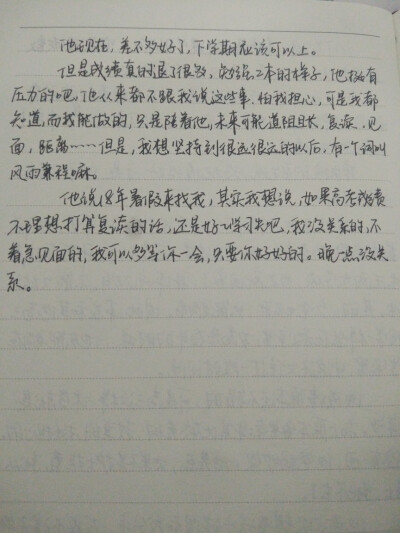 他现在,差不多好了,下学期应该可以上。
但是成绩真的退了很多,
二本的样子,他挺有
压力的吧,他从来都不跟我说这些事,怕我担心,可是我都
知道,而我能做的,只是陪着他,未来可能道阻且长,复读、见
面,距离……但是,我想坚持到很远很远的以后,有一个词叫
风雨兼程嘛。
他说18年暑假来找我,其实我想说,如果高考成绩
不理想打算复读的话,还是好好学习去吧,我没关系的,不
着急见面的,我可以多等你一会,只要你好好的。晚一点没关
系。